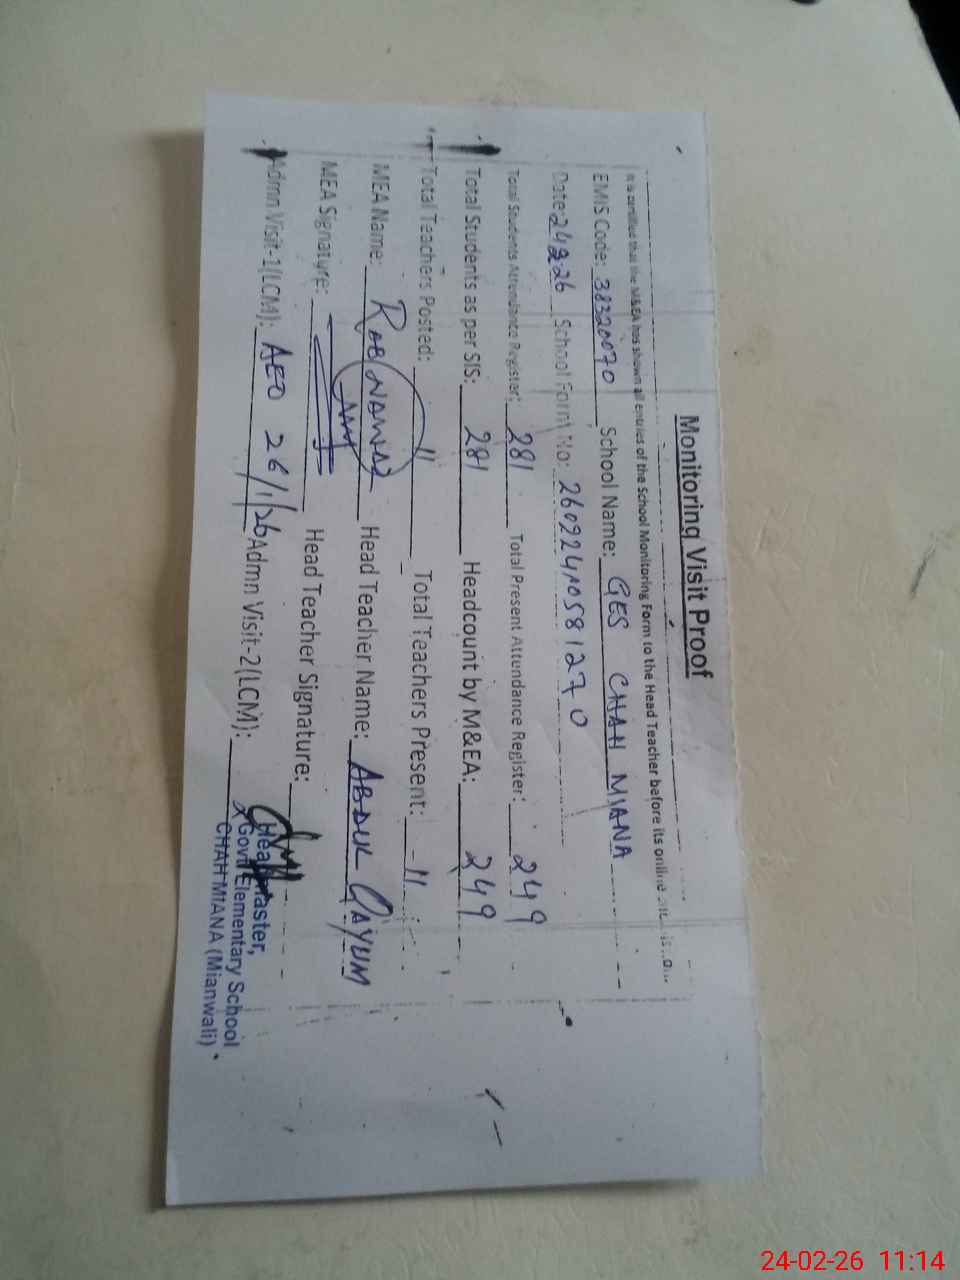 Monitoring Visit Proof
It is certified that the M&EA has shown all entries of the School Monitoring Form to the Head Teacher before its online
EMIS Code: 38320070 School Name: GES CHAH MIANA
Date: 24.2.26 School Form No: 26092410581270
Total Students Attendance Register: 281 Total Present Attendance Register: 249
Total Students as per SIS: 281 Headcount by M&EA: 249
Total Teachers Posted: 11 Total Teachers Present: 11
MEA Name: RAB NAWAZ Head Teacher Name: ABDUL QAYUM
MEA Signature: Head Teacher Signature:
Admn Visit-1(LCM): AEO 26/1/26 Admn Visit-2(LCM):
Headmaster,
Govt: Elementary School
CHAH MIANA (Mianwali)
24-02-26 11:14